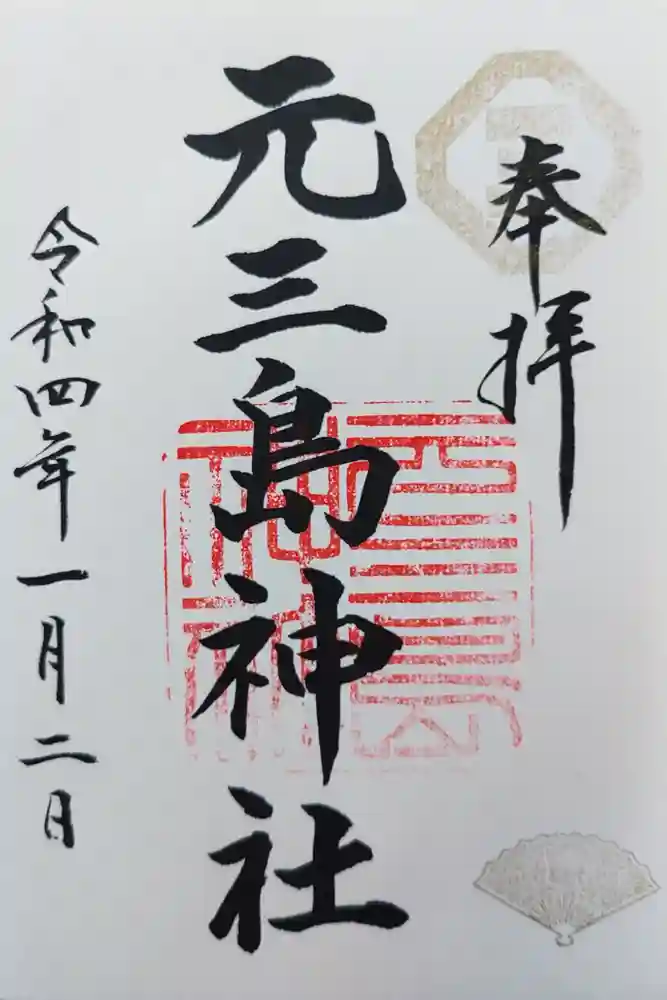 奉拝
元三島神社
令和四年一月二日